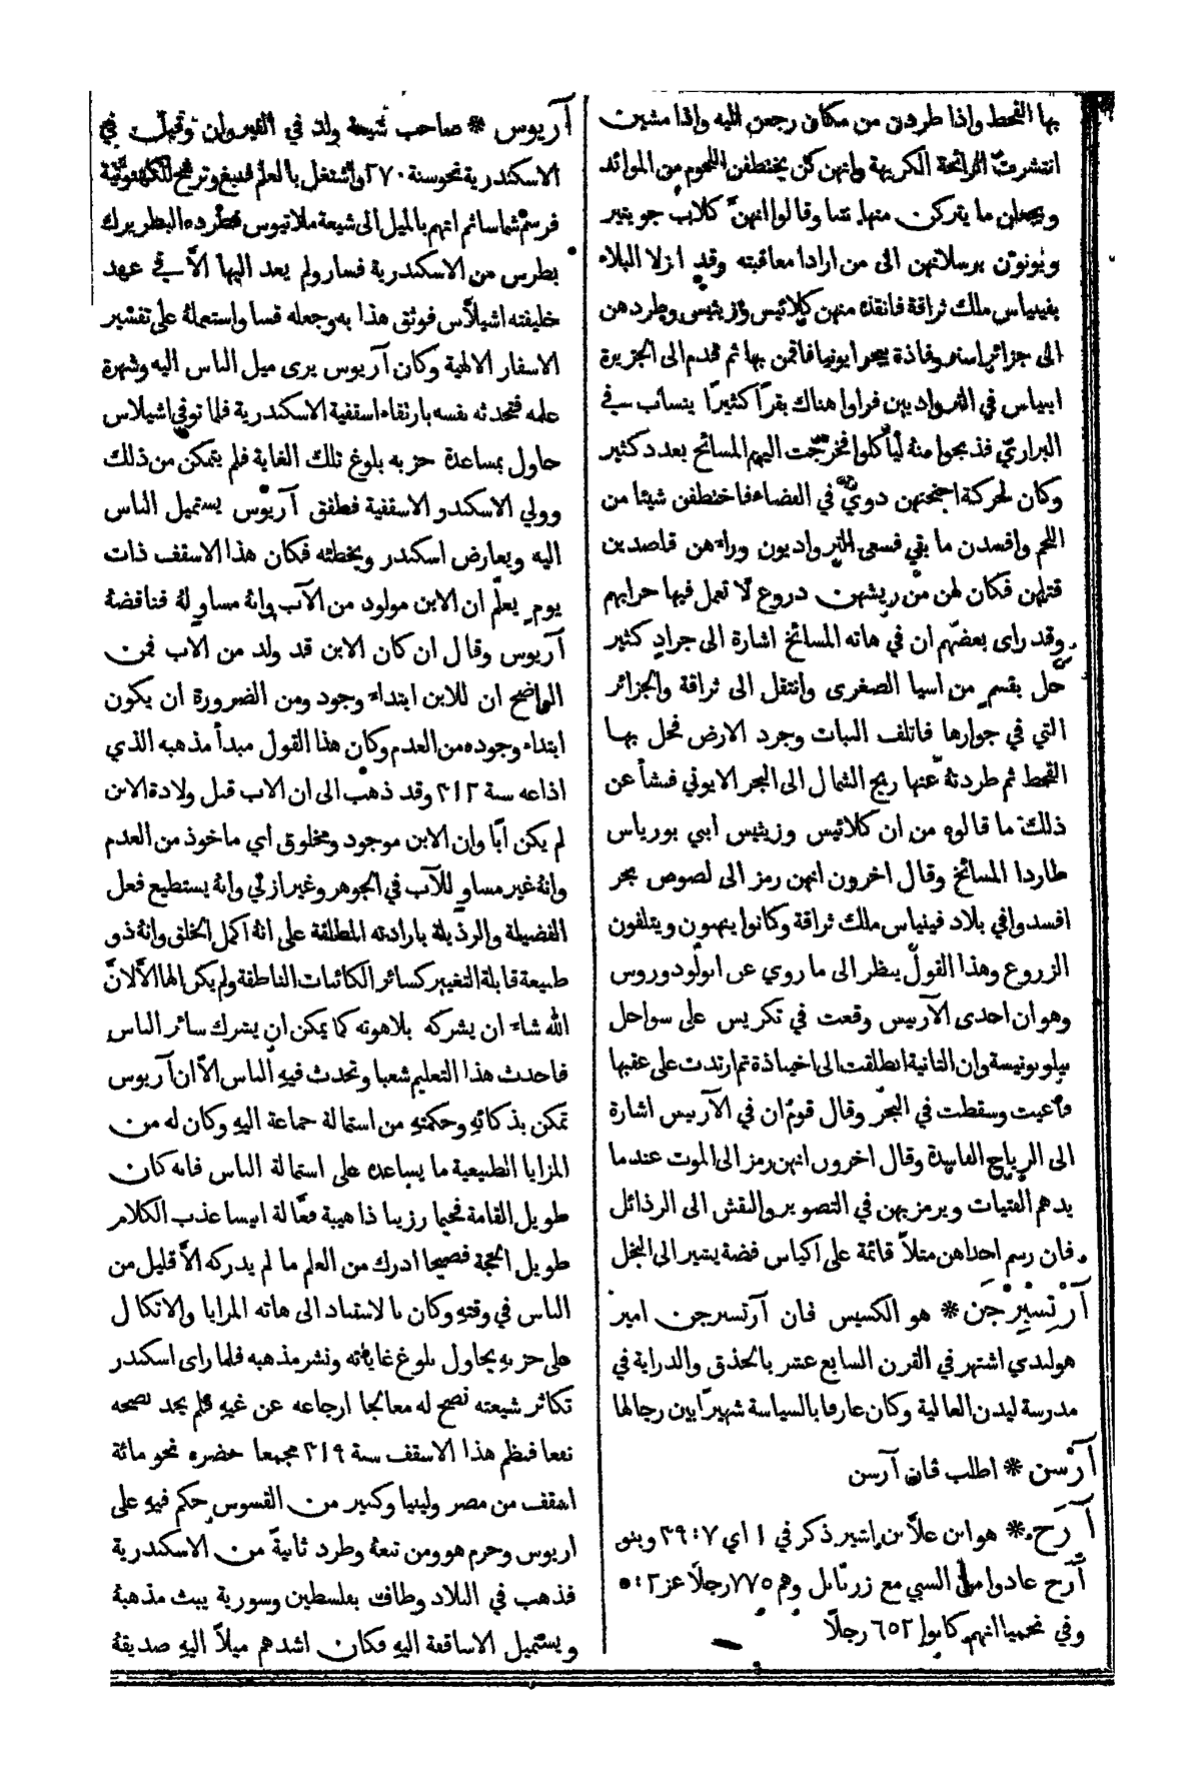 بها القحط واذا طردن من مكان رجعن اليه واذا مشين
انتشرت الرائحة الكريهة وانهن كن يختطفن اللحوم من الموائد
ما يتركن منها نتنا وقالوا انهن كلاب جويتير
ويونون برسلانهن الى من ارادا معاقبته وقد ازلا البلاء
بفينياس ملك ثراقة فانقذه منهن كلائيس وزيثيس وطردهن
الى جزائر بجر ايونيا فاقمن بها ثم قدم الى الجزيرة
ايبياس في التروادبين فراوا هناك بقرًا كثيرًا ينساب في
البراري فذبحوا منهُ ليأكلوا فخرجت اليهم المسائخ بعدد كثير
وكان لحركة اجنحتهن دوي في الفضاء فاختطفن شيئا من
اللحم وافسدن ما بقي فسعى التروادبون وراءهن قاصدين
قتلهن فكان لهن من ريشهن دروع لا تعمل فيها حرابهم
وقد راى بعضهم ان في هاته المسائخ اشارة الى جرادٍ كثير
حل بقسمٍ من اسيا الصغرى وانتقل الى ثراقة والجزائر
التي في جوارها فاتلف النبات وجرد الارض فحل بها
القحط ثم طردته عنها ريح الشمال الى البحر الايوني فنشأ عن
ذلك ما قالوه من ان كلائيس وزيثيس ابني بورياس
طاردا المسائخ وقال اخرون انهن رمز الى لصوص بحر
افسدوا في بلاد فينياس ملك ثراقة وكانوا ينهبون ويتلفون
الزروع وهذا القول ينظر الى ما روي عن ابولودوروس
وهو ان احدى الآربيس وقعت في تكريس على سواحل
بيلوبونيسة وان الثانية انطلقت الى اخيناذة ثم ارتدت على عقبها
فأعيت وسقطت في البحر وقال قوم ان في الآربيس اشارة
الى الرياح الفاسدة وقال اخرون انهن رمز الى الموت عندما
يدهم الفتيات ويرمز بهن في التصوير والنقش الى الرذائل
فان رسم احداهن مثلاً قائمة على اكياس فضة يشير الى البخل
آرْتِسْبِرْجَن * هو الكسيس فان آرتسبرجن امير
هولندي اشتهر في القرن السابع عشر بالحذق والدراية في
مدرسة ليدن العالية وكان عارفا بالسياسة شهيرًا بين رجالها
آرْسن * اطلب ڤان آرسن
آرَح * هو ابن علاّ من اشير ذكر في ١ اي ٧: ٣٩ وبنو
آرح عادوا من السبي مع زربابل وهم ٧٧٥ رجلاً عز ٢: ٥
وفي نحميا انهم كانوا ٦٥٢ رجلاً
آريوس * صاحب شيعة ولد في القيروان وقيل في
الاسكندرية نحو سنة ٢٧٠ واشتغل بالعلم فنبغ وترشح للكهنوتية
فرسم شماسا ثم اتهم بالميل الى شيعة ملاتيوس فطرده البطريرك
بطرس من الاسكندرية فسار ولم يعد اليها الاَّ في عهد
خليفته اشيلاّس فوثق هذا به وجعله قسا واستعمله على تفسير
الاسفار الالهية وكان آريوس يرى ميل الناس اليه وشهرة
علمه فتحدثه نفسه بارتقاء اسقفية الاسكندرية فلما توفي اشيلاس
حاول بمساعدة حزبه بلوغ تلك الغاية فلم يتمكن من ذلك
وولي الاسكندر الاسقفية فطفق آريوس يستميل الناس
اليه ويعارض اسكندر ويخطئه فكان هذا الاسقف ذات
يومٍ يعلّم ان الابن مولود من الآب وانهُ مساوٍ لهُ فناقضهُ
آريوس وقال ان كان الابن قد ولد من الاب فمن
الواضح ان للابن ابتداء وجود ومن الضرورة ان يكون
ابتداء وجوده من العدم وكان هذا القول مبدأ مذهبه الذي
اذاعه سنة ٣١٢ وقد ذهب الى ان الاب قبل ولادة الابن
لم يكن ابًا وان الابن موجود ومخلوق اي ماخوذ من العدم
وانهُ غير مساوٍ للآب في الجوهر وغير ازلي وانهُ يستطيع فعل
الفضيلة والرذيلة بارادته المطلقة على انهُ اكمل الخلق وانهُ ذو
طبيعة قابلة التغيير كسائر الكائنات الناطقة ولم يكن الها الاَّ لانَّ
الله شاء ان يشركه بلاهوته كما يمكن ان يشرك سائر الناس
فاحدث هذا التعليم شعبا وتحدث فيهِ الناس الاّ ان آريوس
تمكن بذكائهِ وحكمتهِ من استمالة جماعة اليهِ وكان له من
المزايا الطبيعية ما يساعده على استمالة الناس فانه كان
طويل القامة فخيما رزينا ذا هيبة فعَّالة انيسا عذب الكلام
طويل الحجة فصيحا ادرك من العلم ما لم يدركه الاَّ قليل من
الناس في وقتهِ وكان بالاستناد الى هاته المزايا والاتكال
على حزبهِ يحاول بلوغ غاياته ونشر مذهبه فلما راى اسكندر
تكاثر شيعته نصح له معالجا ارجاعه عن غيهِ فلم يجد نصحه
نفعا فنظم هذا الاسقف سنة ٣١٩ مجمعا حضره نحو مائة
اسقف من مصر وليبيا وكثير من القسوس حكم فيهِ على
اريوس وحرم هو ومن تبعهُ وطرد ثانيةً من الاسكندرية
فذهب في البلاد وطاف بفلسطين وسورية يبث مذهبهُ
ويستميل الاساقفة اليهِ فكان اشدهم ميلاً اليهِ صديقهُ